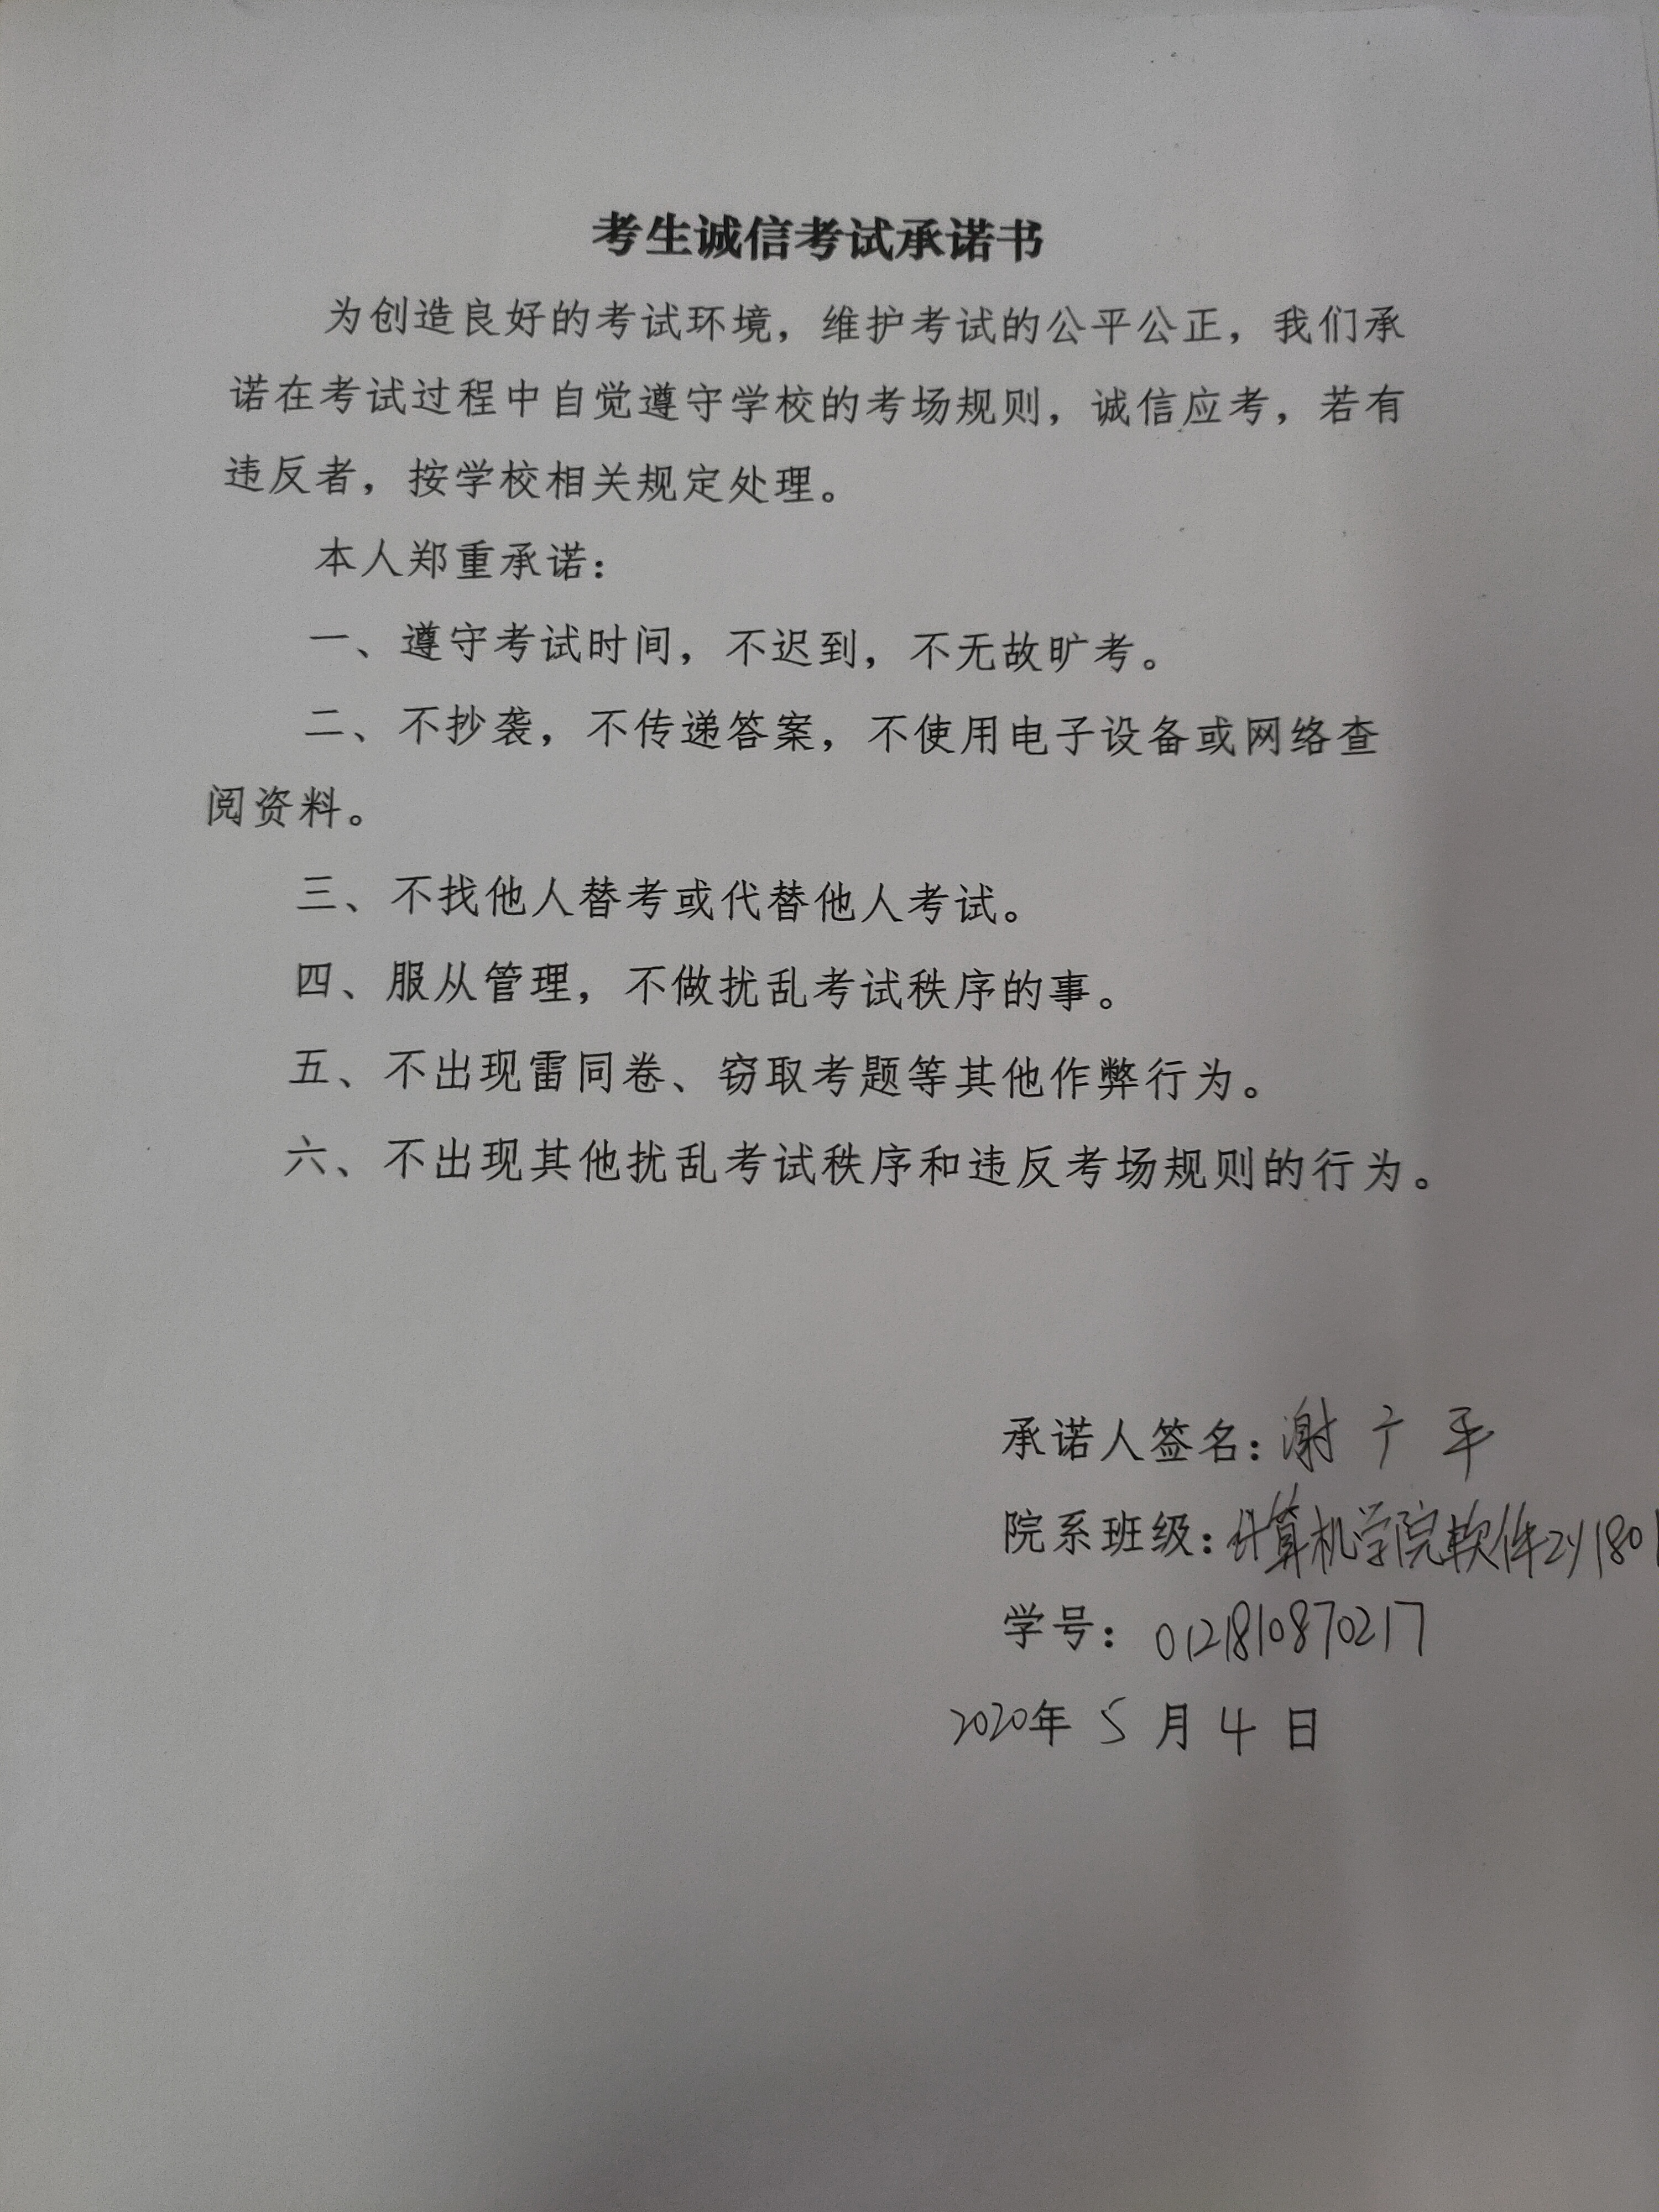 考生诚信考试承诺书
为创造良好的考试环境，维护考试的公平公正，我们承
诺在考试过程中自觉遵守学校的考场规则，诚信应考，若有
违反者，按学校相关规定处理。
本人郑重承诺：
一、遵守考试时间，不迟到，不无故旷考。
二、不抄袭，不传递答案，不使用电子设备或网络查
阅资料。
三、不找他人替考或代替他人考试。
四、服从管理，不做扰乱考试秩序的事。
五、不出现雷同卷、窃取考题等其他作弊行为。
六、不出现其他扰乱考试秩序和违反考场规则的行为。
承诺人签名：谢广平
院系班级：计算机学院软件zy1801
学号：0121810870217
2020年 5 月 4 日